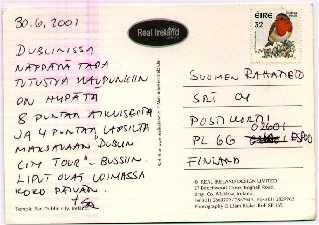 30.6.2001
DUBLINISSA
NÄPPÄRÄ TAPA
TUTUSTUA KAUPUNKIIN
ON HYPÄTÄ
8 PUNTAA AIKUISELTA
JA 4 PUNTAA LAPSELTA
MAKSAVAAN DUBLIN
CITY TOUR - BUSSIIN.
LIPUT OVAT VOIMASSA
KOKO PÄIVÄN.
Temple Bar, Dublin City, Ireland
Real Ireland
ÉIRE
32
SUOMEN RAHATIETO
SRT OY
POSTI KORTTI
PL 66
02601
ESPOO
FINLAND
© REAL IRELAND DESIGN LIMITED
27 Beechwood Close, Boghall Road,
Bray, Co. Wicklow, Ireland.
Photography © Liam Blake